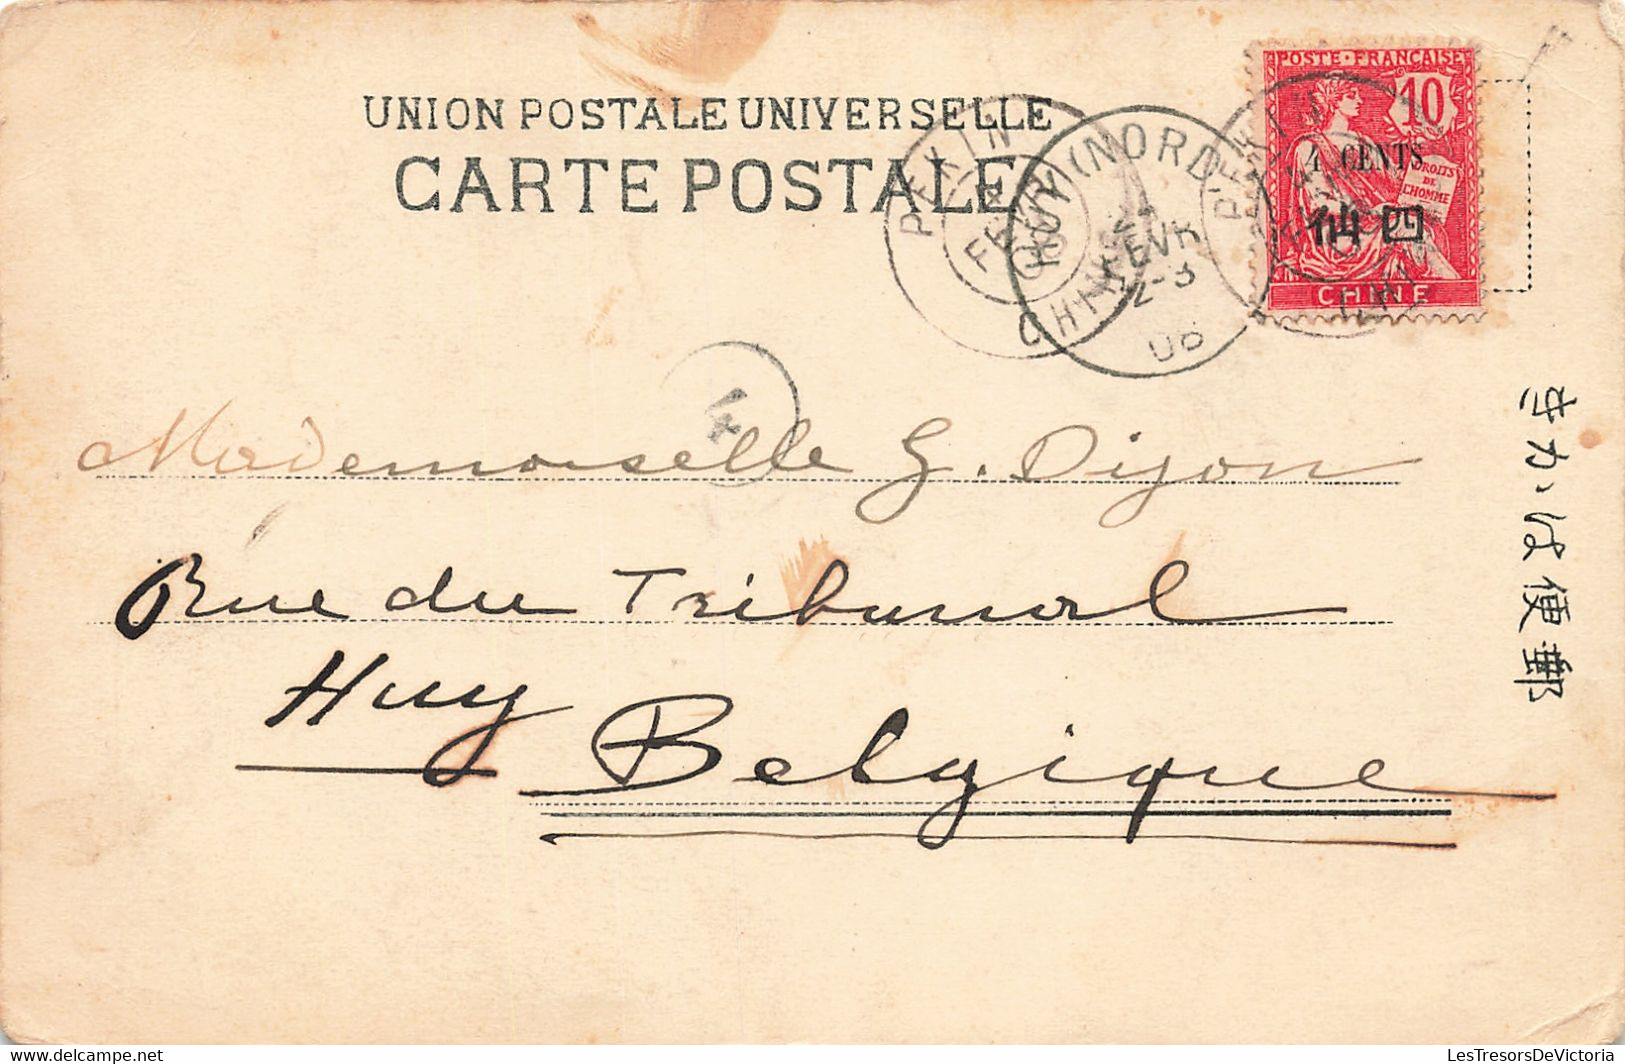 UNION POSTALE UNIVERSELLE
CARTE POSTALE
POSTE FRANÇAISE
10
4 CENTS
DROITS
DE
L'HOMME
仙四
CHINE
PEKIN
CHINE
HUY (NORD)
FEVR
12-3
PEKIN
4
Mademoiselle G. Dijon
Rue du Tribunal
Huy
Belgique
きかは便郵
LesTresorsDeVictoria
www.delcampe.net